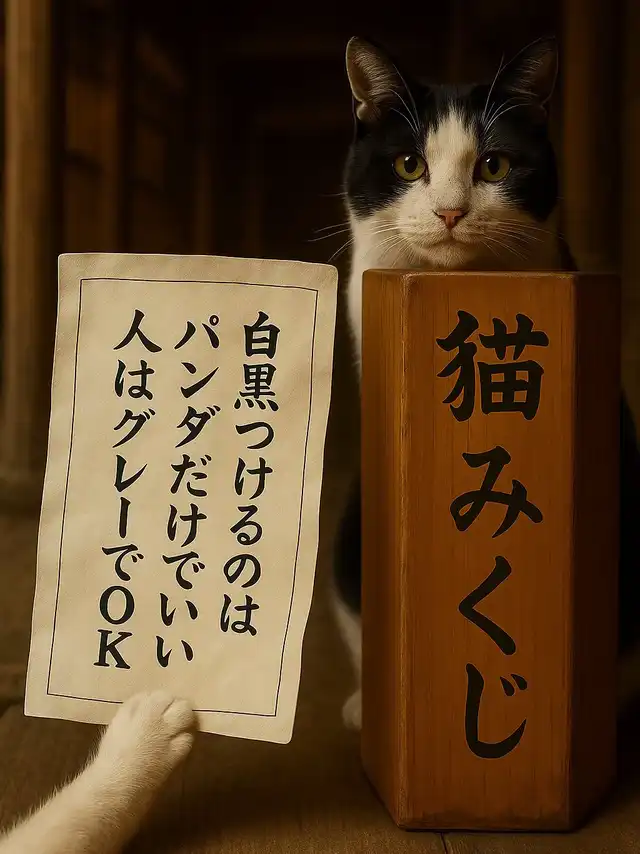 白黒つけるのは
パンダだけでいい
人はグレーでOK
猫みくじ